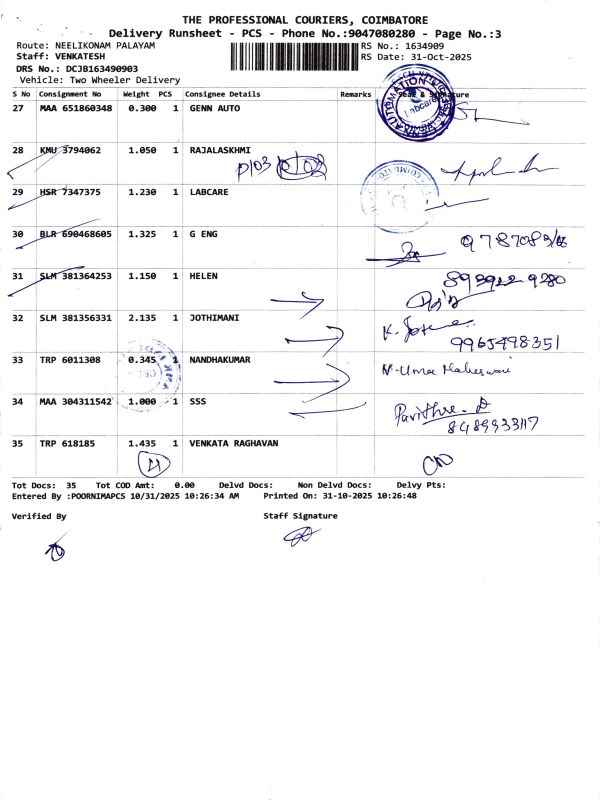 THE PROFESSIONAL COURIERS, COIMBATORE
Delivery Runsheet - PCS - Phone No.:9047080280 - Page No.:3
Route: NEELIKONAM PALAYAM
RS No.: 1634909
Staff: VENKATESH
RS Date: 31-Oct-2025
DRS No.: DCJB163490903
Vehicle: Two Wheeler Delivery
S No Consignment No Weight PCS Consignee Details Remarks Seal & Signature
27 MAA 651860348 0.300 1 GENN AUTO
AUTOMATION
Labcare
28 KMU 3794062 1.050 1 RAJALASKHMI
P/03
29 HSR 7347375 1.230 1 LABCARE
30 BLR 690468605 1.325 1 G ENG
31 SLM 381364253 1.150 1 HELEN
893922 9280
32 SLM 381356331 2.135 1 JOTHIMANI
9965498351
33 TRP 6011308 0.345 1 NANDHAKUMAR
N-Uma Maheswari
34 MAA 304311542 1.000 1 SSS
Pavithre. D
8489933117
35 TRP 618185 1.435 1 VENKATA RAGHAVAN
Tot Docs: 35 Tot COD Amt: 0.00 Delvd Docs: Non Delvd Docs: Delvy Pts:
Entered By :POORNIMAPCS 10/31/2025 10:26:34 AM Printed On: 31-10-2025 10:26:48
Verified By Staff Signature